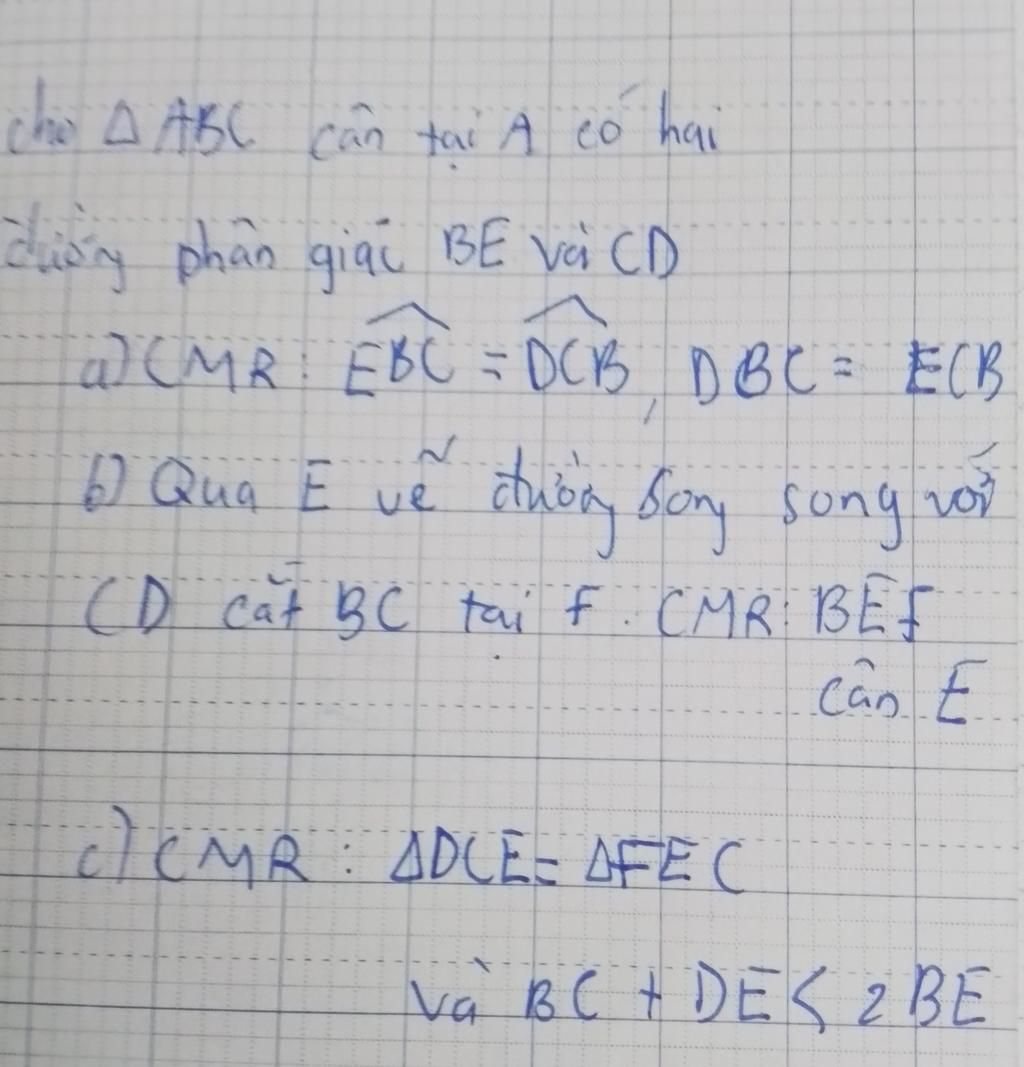 cho Δ ABC cân tại A có hai
đường phân giác BE và CD
a) CMR : \widehat{EBC} = \widehat{DCB}, DBC = ECB
b) Qua E vẽ đường song song với
CD cắt BC tại F. CMR: BEF
cân E
c) CMR : ΔDCE = ΔFEC
và BC + DE < 2 BE